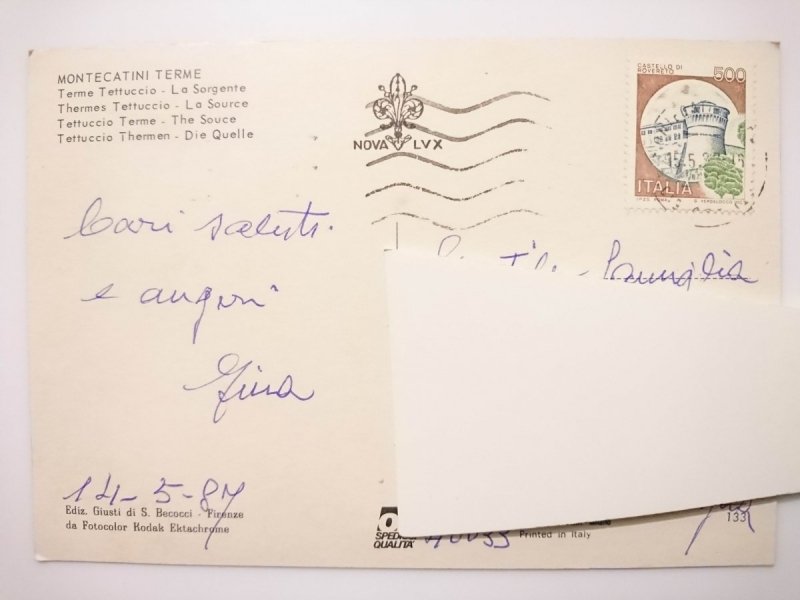 MONTECATINI TERME
Terme Tettuccio - La Sorgente
Thermes Tettuccio - La Source
Tettuccio Terme - The Souce
Tettuccio Thermen - Die Quelle
NOVA LVX
CASTELLO DI
ROVERETO
500
ITALIA
Cari saluti
e auguri
Gina
Famiglia
14-5-87
Ediz. Giusti di S. Becocci - Firenze
da Fotocolor Kodak Ektachrome
QUALITA'
Printed in Italy
133